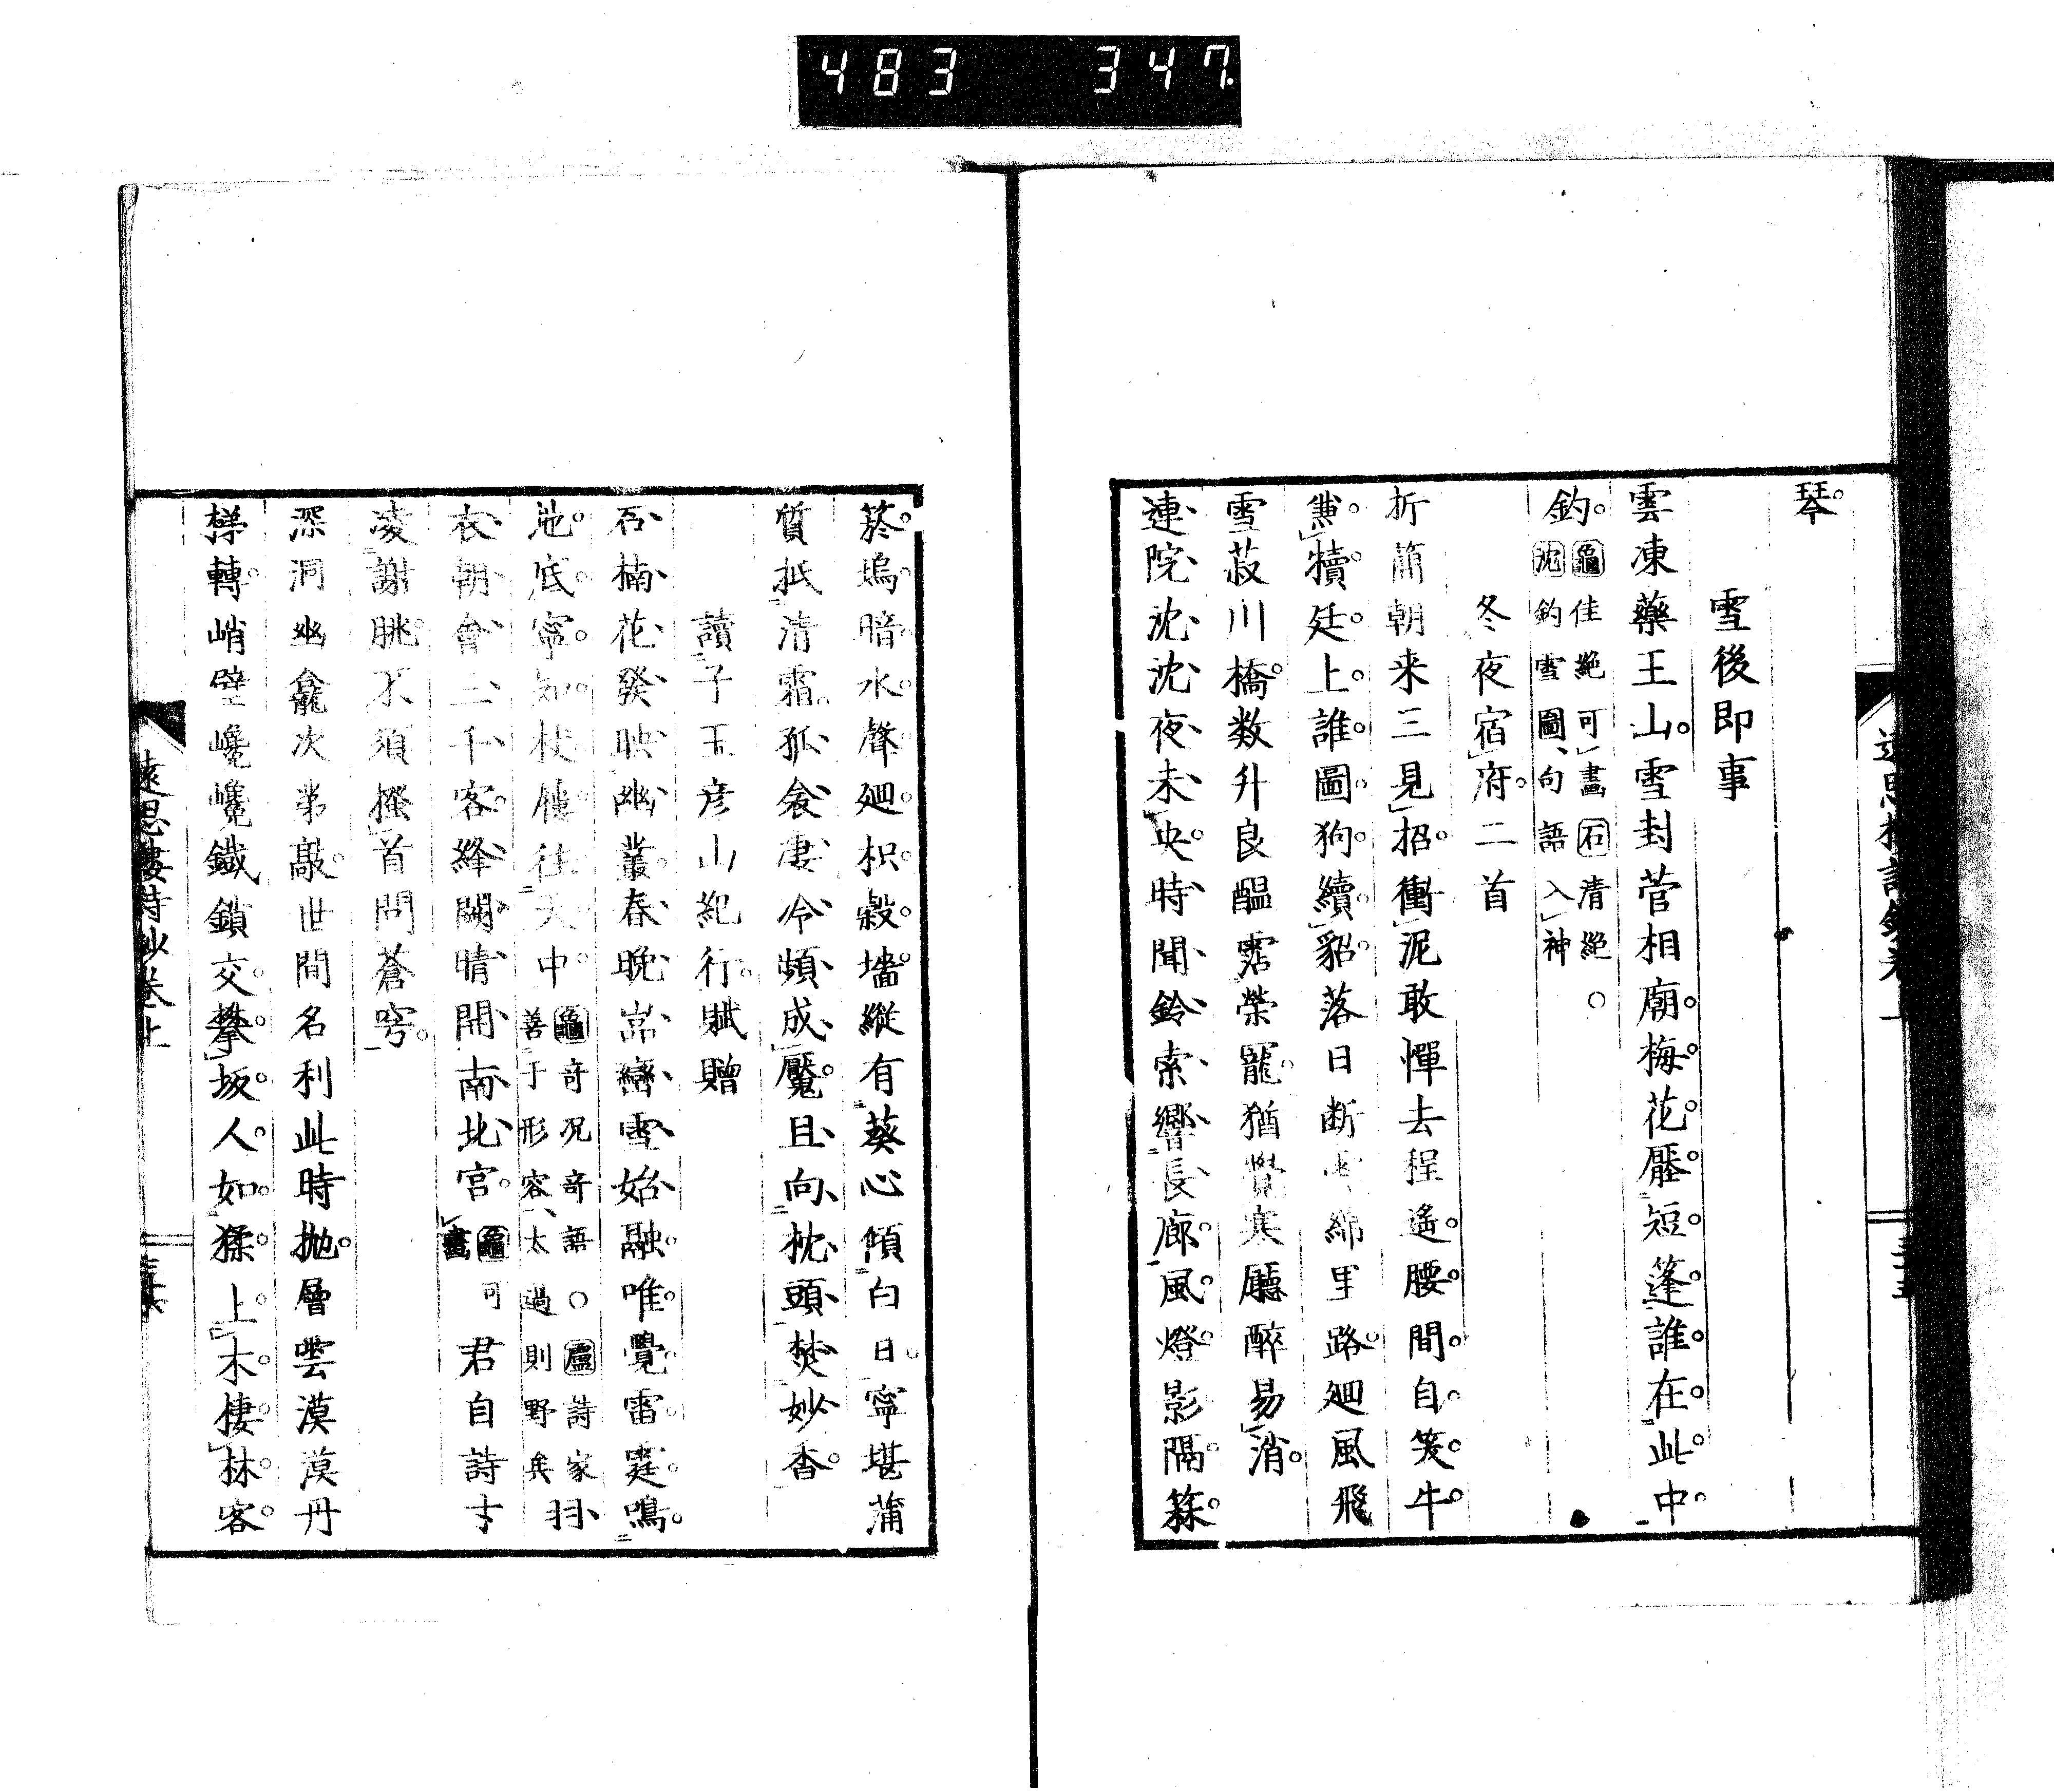 483 347
琴
雪後即事
雲凍藥王山雪封菅相廟梅花壓短篷誰在此中
釣
龜佳絶可畫石清絶○
沈釣雪圖向語入神
冬夜宿府二首
折簡朝来三見招衝泥敢憚去程遙腰間自笑牛
無犢廷上誰圖狗續貂落日断雲綿里路廻風飛
雪菽川橋数升良醞霑榮寵猶覺寒廳醉易消
連院沈沈夜未央時聞鈴索響長廊風燈影隔篠
遠思楼詩鈔卷上
菸塢暗水聲廻枳殼墻縱有葵心傾白日寧堪蒲
質抵清霜孤衾凄冷頻成魘且向枕頭焚妙香
讀子玉彦山紀行賦贈
石楠花發映幽叢春晩嵓巒雪始融唯覺雷霆鳴
地底寧知杖屨往天中
龜奇况奇語○盧詩家
善于形容太過則野矣
羽
衣朝會三千客絳闕晴開南北宮
龜可
畫
君自詩才
凌謝朓不須搔首問蒼穹
深洞幽龕次第敲世間名利此時抛層雲漠漠丹
梯轉峭壁巉巉鐵鎖交攀坂人如猱上木棲林客
遠思樓詩鈔卷上